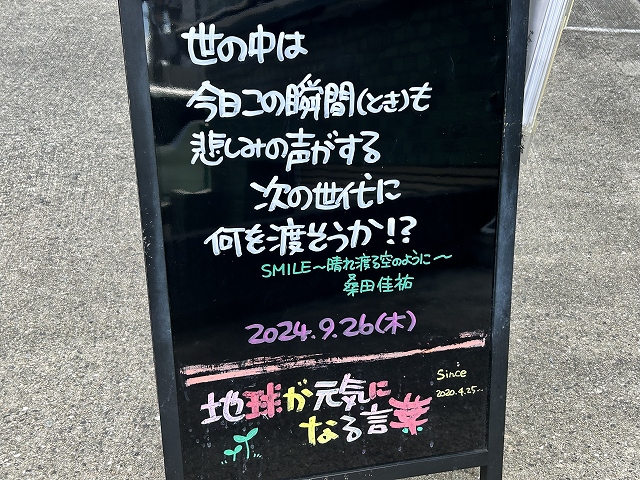 世の中は
今日この瞬間(とき)も
悲しみの声がする
次の世代に
何を渡そうか!?
SMILE〜晴れ渡る空のように〜
桑田佳祐
2024.9.26(木)
地球が元気に
なる言葉
Since
2020.4.25〜